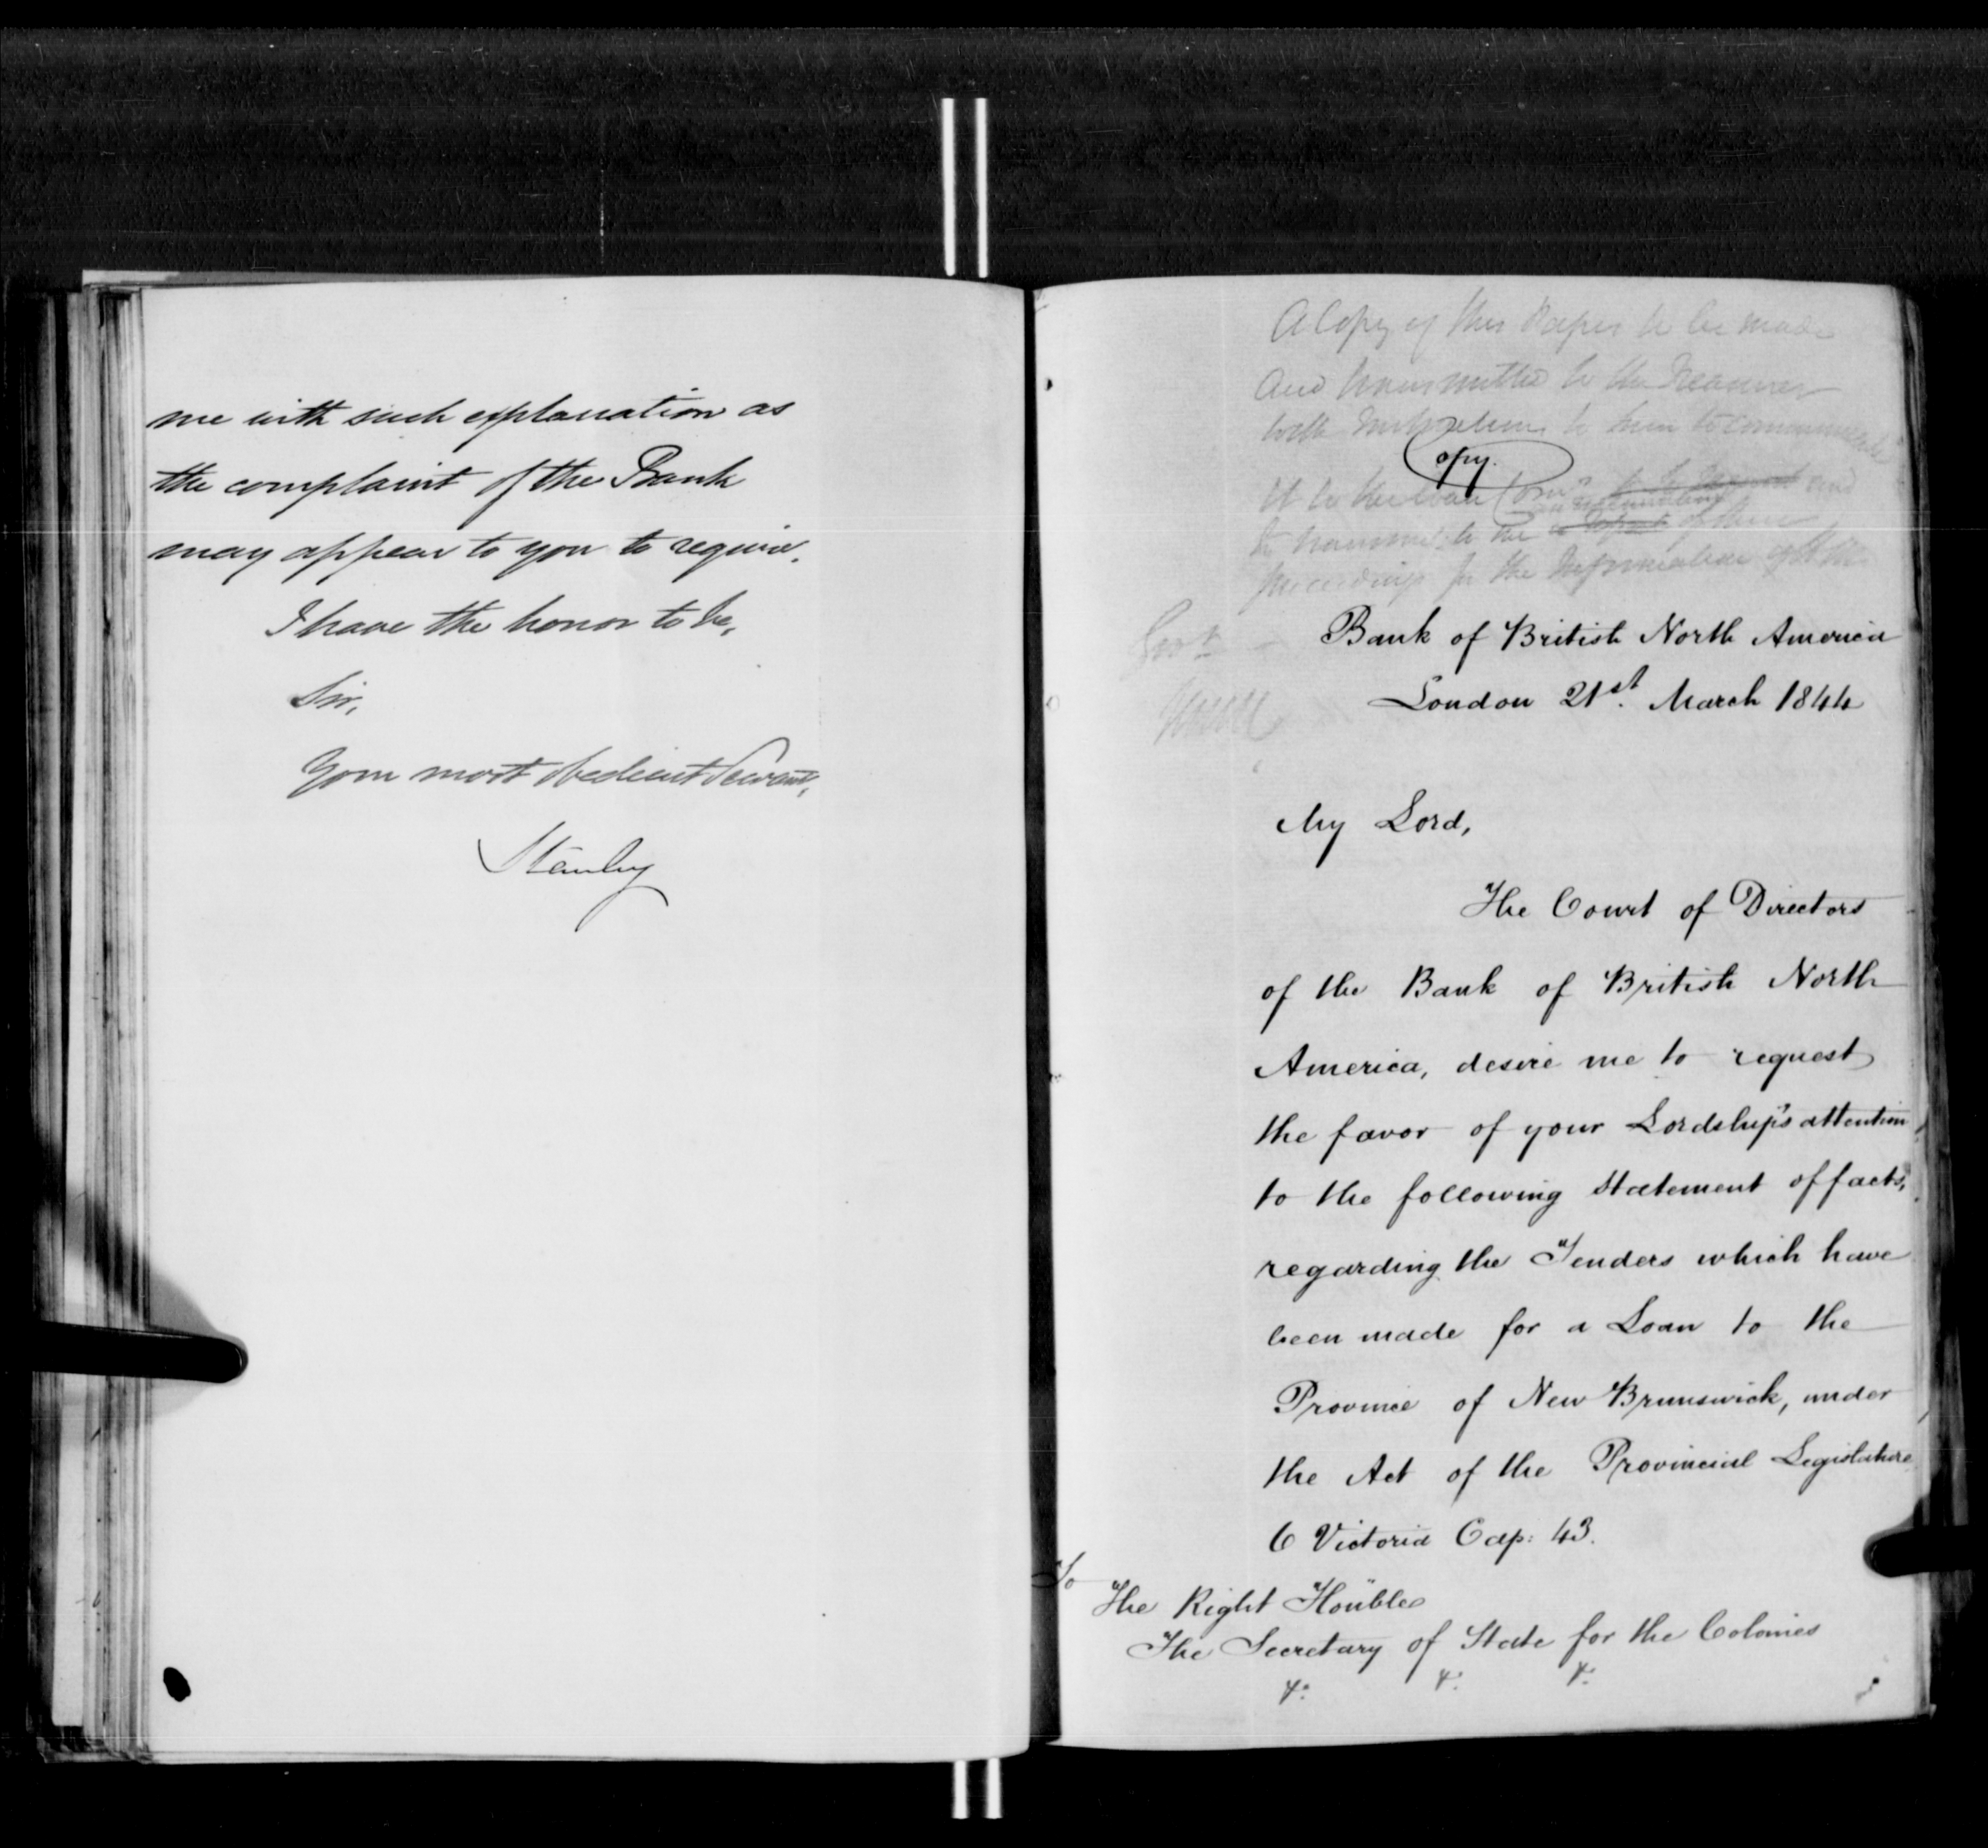 me with such explanation as
the complaint of the Bank
may appear to you to require.
I have the honor to be,
Sir,
Your most obedient Servant,
Stanley
A Copy of this Paper to be made
and transmitted to the Treasurer
with Instructions to him to communicate
Copy.
it to the Loan Com and
to transmit to me of their
proceedings for the Information of
Bank of British North America
London 21st. March 1844
My Lord,
The Court of Directors
of the Bank of British North
America, desire me to request
the favor of your Lordship's attention
to the following statement of facts,
regarding the Tenders which have
been made for a Loan to the
Province of New Brunswick, under
the Act of the Provincial Legislature
6 Victoria Cap: 43.
To
The Right Honble
The Secretary of State for the Colonies
&c. &c. &c.